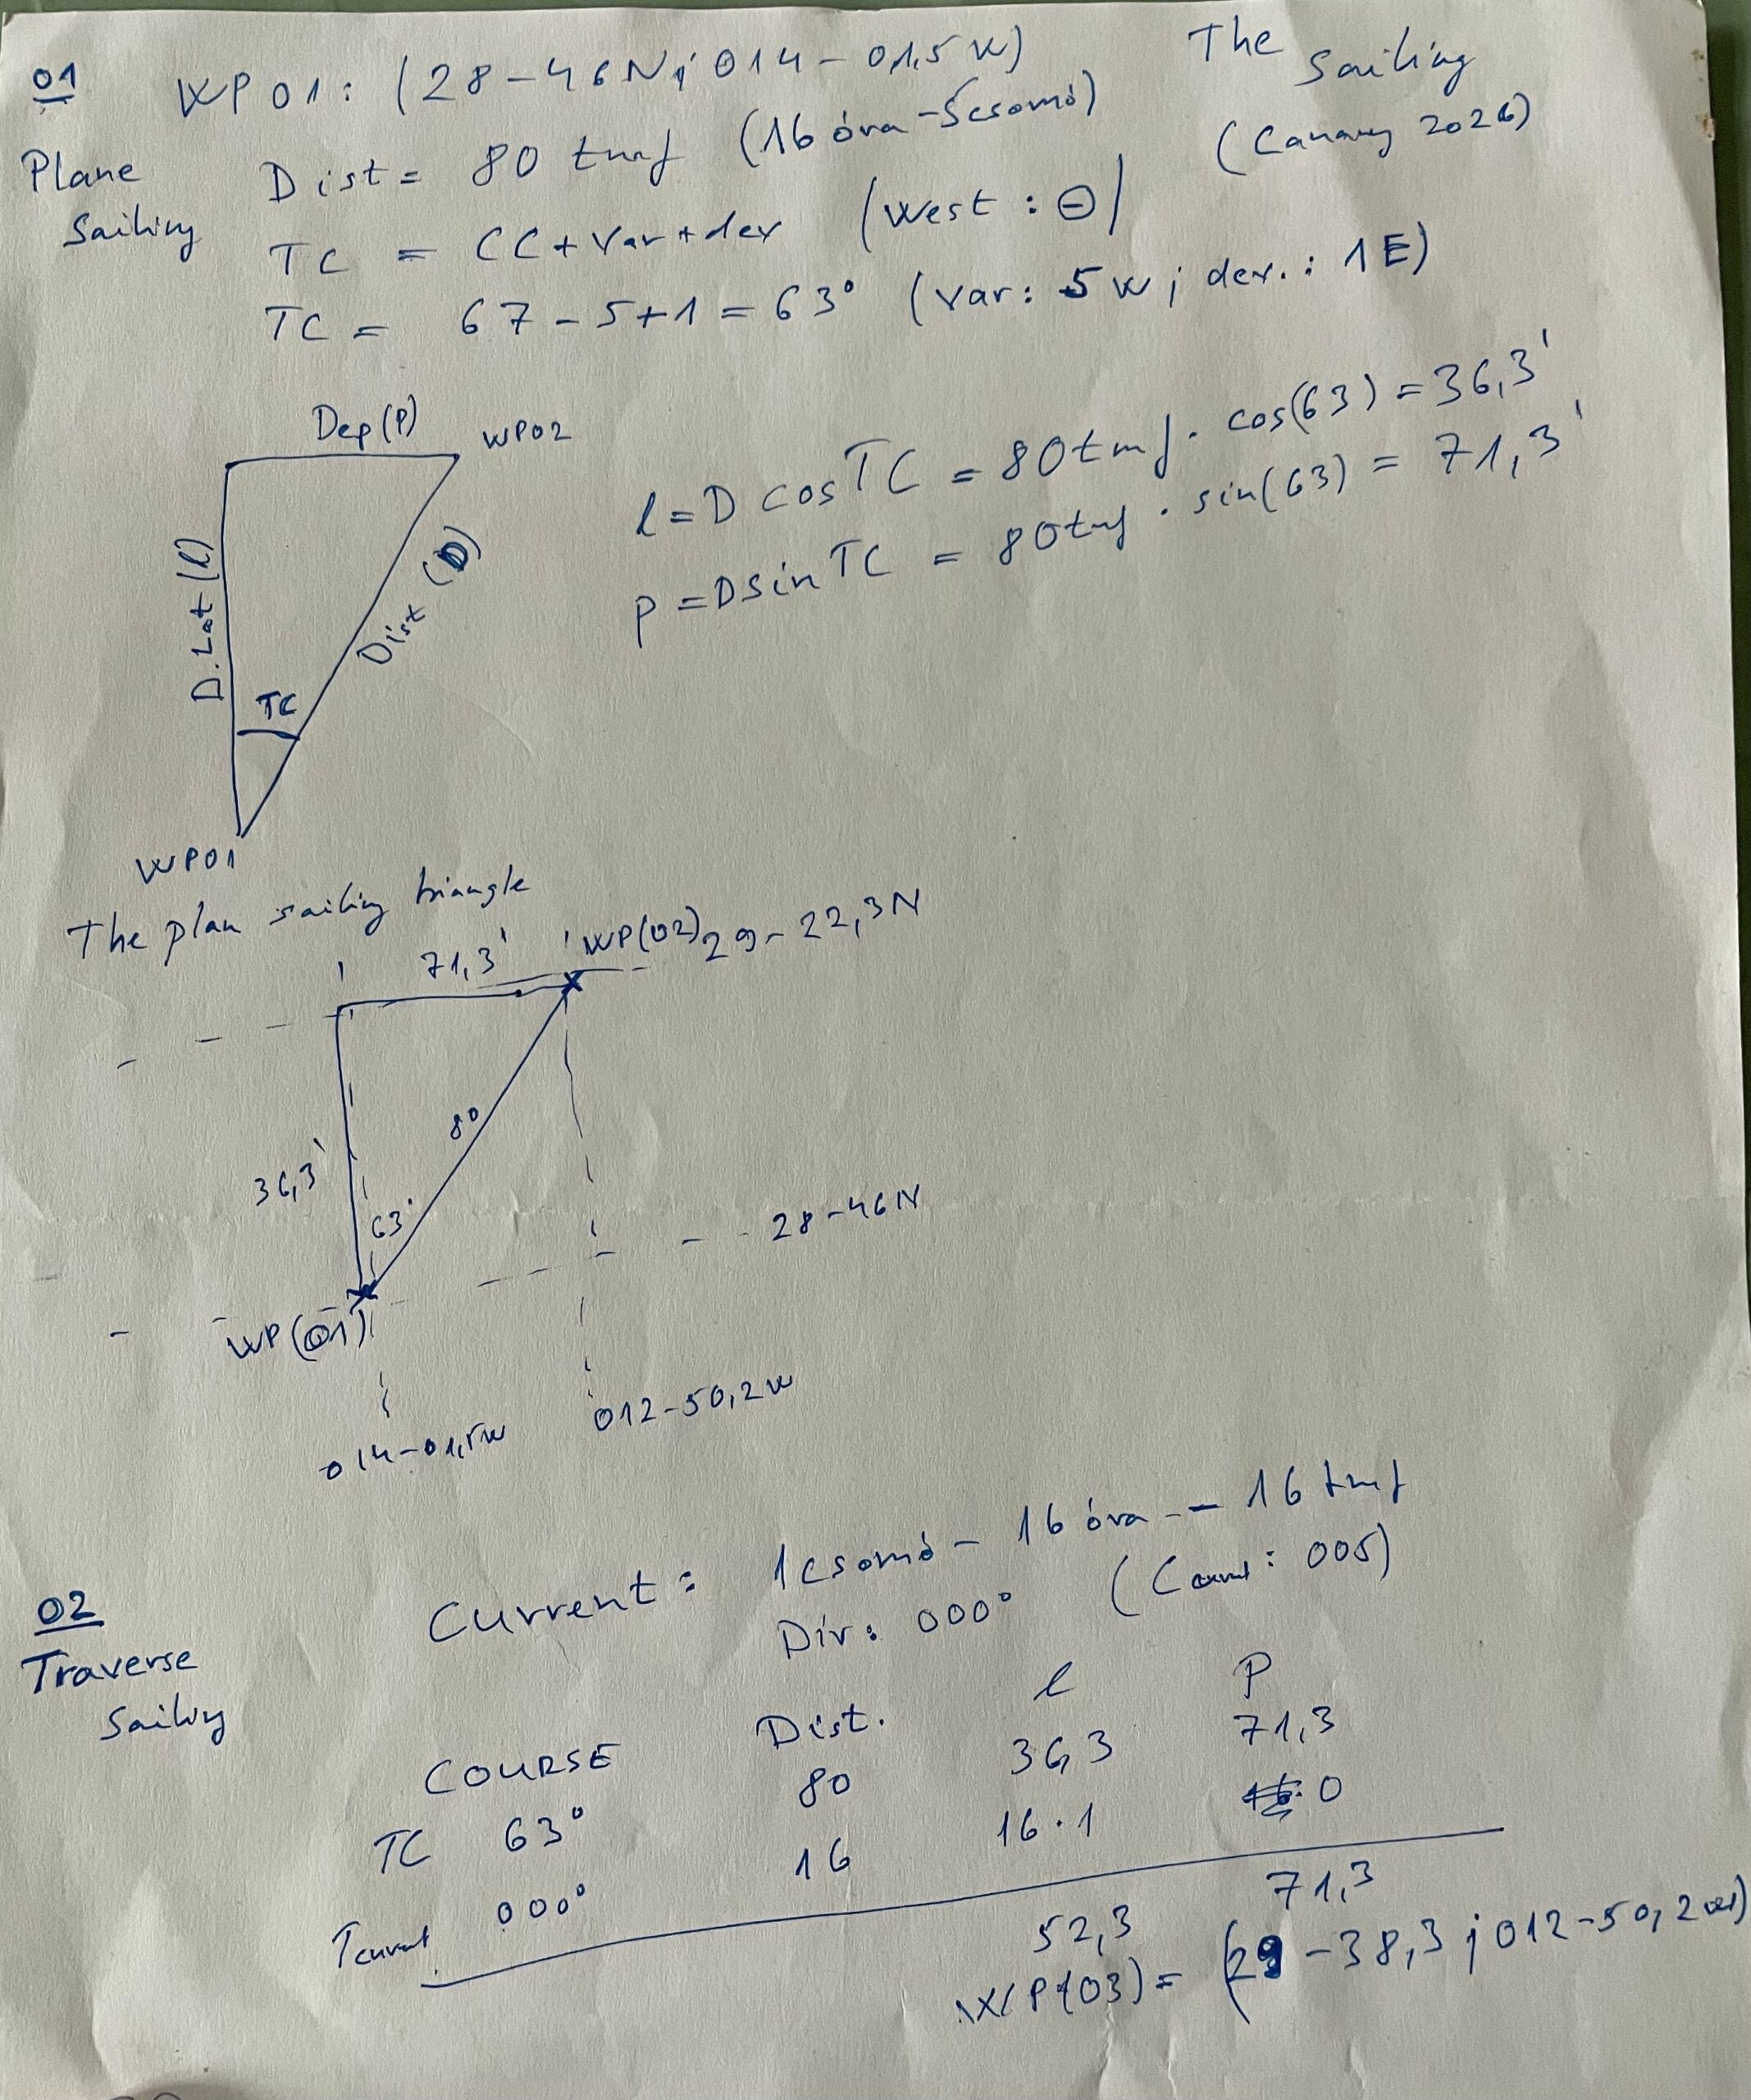 The Sailing
(Canary 2026)
01
Plane Sailing
WP01: (28-46N; 014-01,5W)
Dist = 80 tmf (16 óra - 5csomó)
TC = CC + Var + dev (West : ⊖)
TC = 67 - 5 + 1 = 63° (Var: 5W; dev.: 1E)
Dep(P) WP02
D.Lat (l)
Dist (D)
TC
WP01
l = D cos TC = 80tmf · cos(63) = 36,3'
p = D sin TC = 80tmf · sin(63) = 71,3'
The plan sailing triangle
71,3' WP(02) 29-22,3N
36,3'
80
63°
28-46N
WP(01)
014-01,5W 012-50,2W
02
Traverse Sailing
Current: 1csomó - 16 óra -- 16 tmf
Dir: 000° ( : 005)
COURSE Dist. l P
TC 63° 80 36,3 71,3
Tcurrent 000° 16 16·1 0
52,3 71,3
WP(03) = (29-38,3; 012-50,2W)